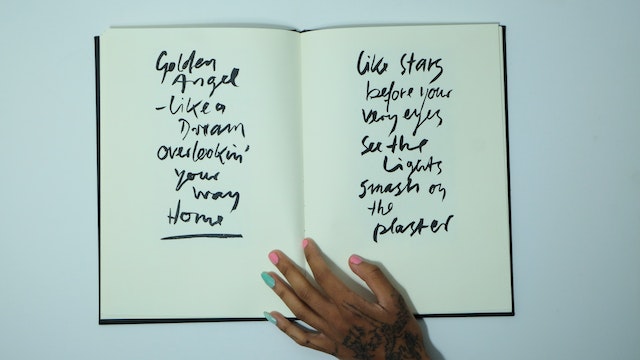 Golden
Angel
-Like a
Dream
overlookin'
your
way
Home
Like Stars
before your
very eyes
See the
Lights
smash on
the
plaster